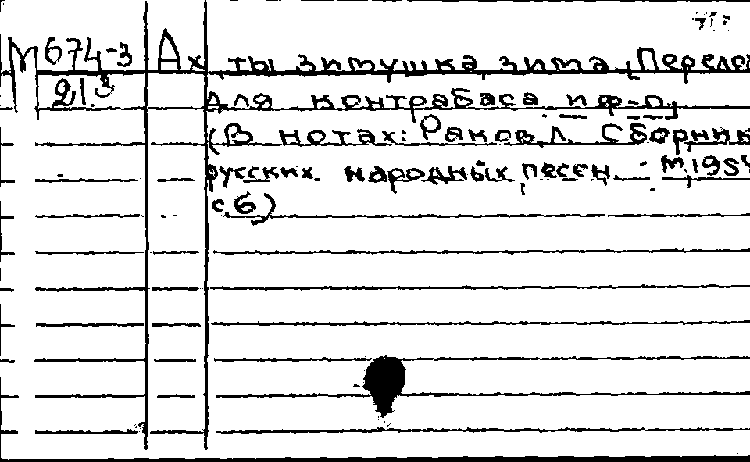 М 674-3 Ах, ты зимушка, зима. [Перелож
21.3 для контрабаса и ф-п.]
(В нотах: Раков, Л. Сборник
русских народных песен. - М, 1954
с. 6)